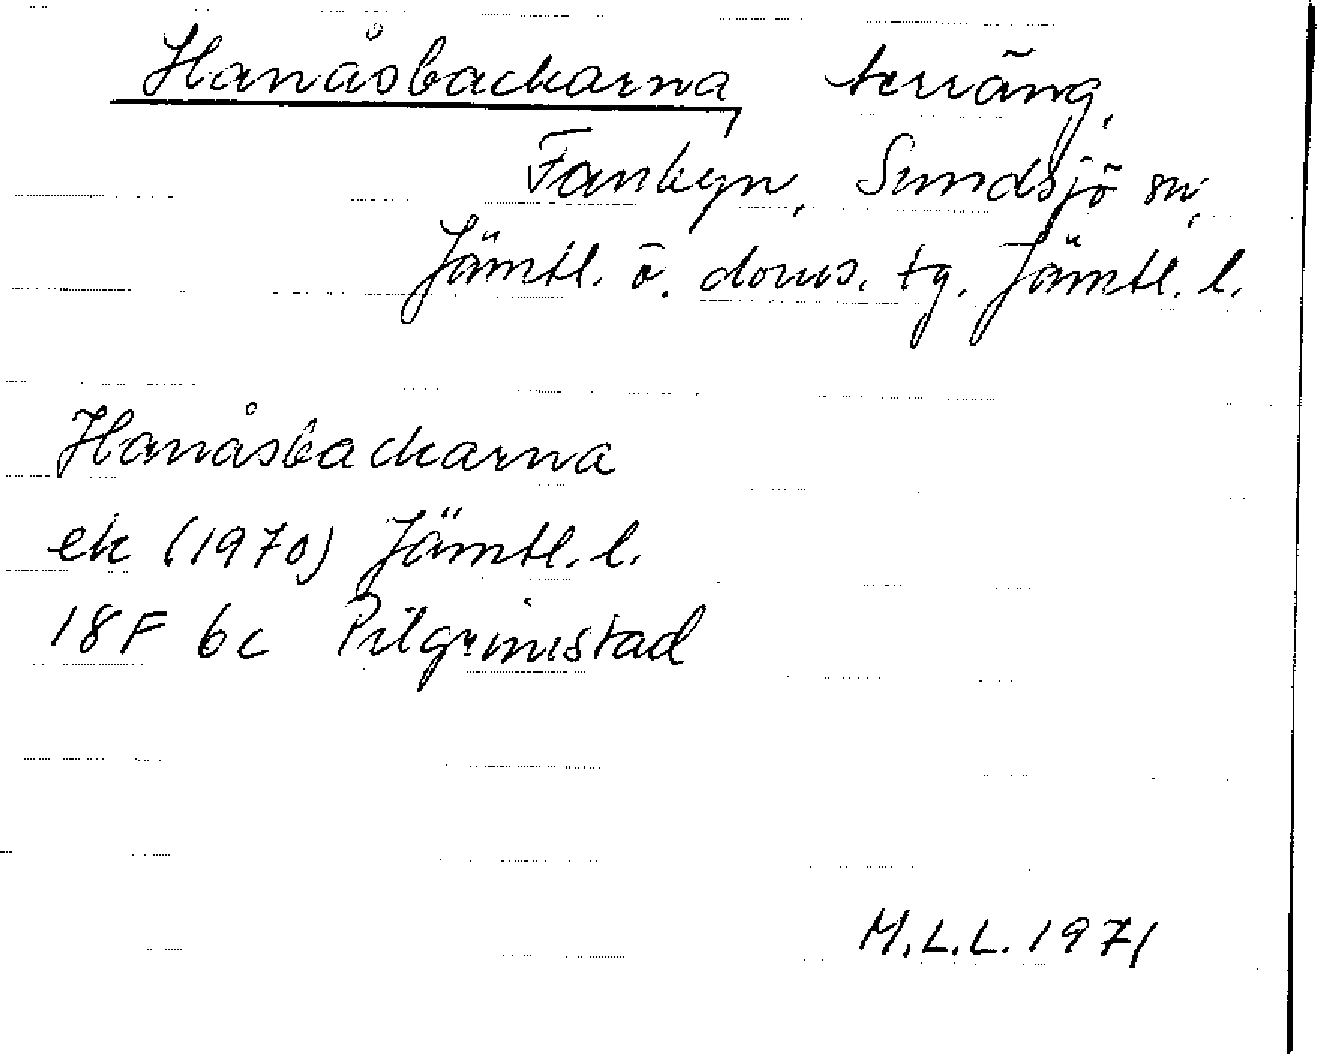 Hanåsbackarna, terräng,
Fanbyn, Sundsjö sn,
Jämtl. ö. doms. tg. Jämtl. l.
Hanåsbackarna
ek (1970) Jämtl. l.
18F 6c Pilgrimstad
M.L.L. 1971